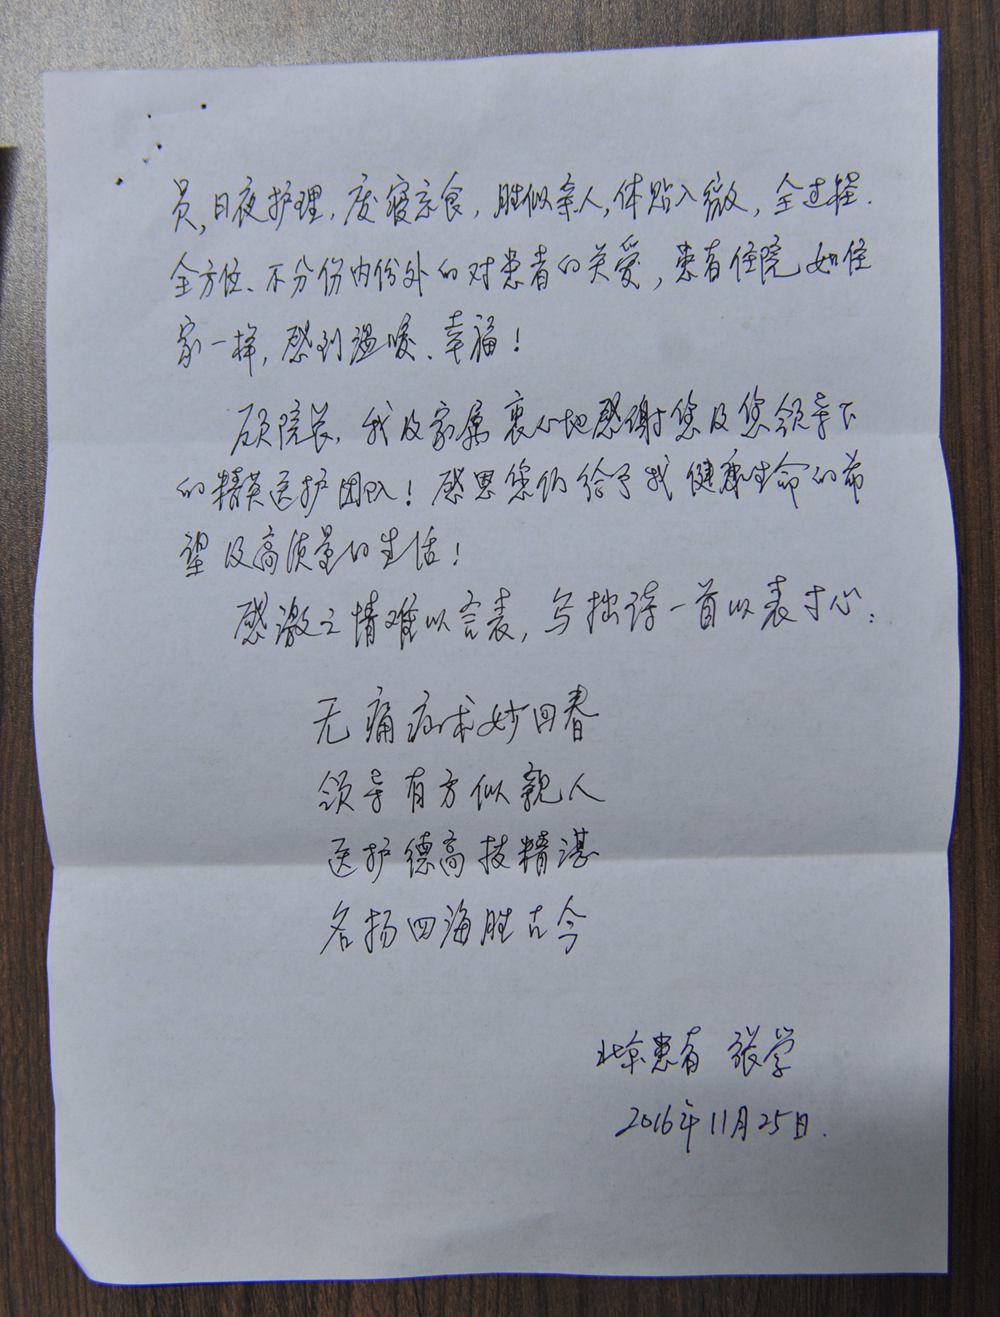 员,日夜护理,废寝忘食,胜似亲人,体贴入微,全过程.
全方位、不分份内份外的对患者的关爱,患者住院如住
家一样,感到温暖、幸福!
顾院长,我及家属衷心地感谢您及您领导下
的精英医护团队!感恩您们给予我健康生命的希
望及高质量的生活!
感激之情难以言表,写拙诗一首以表寸心:
无痛疗术妙回春
领导有方似亲人
医护德高技精湛
名扬四海胜古今
北京患者 张学
2016年11月25日.